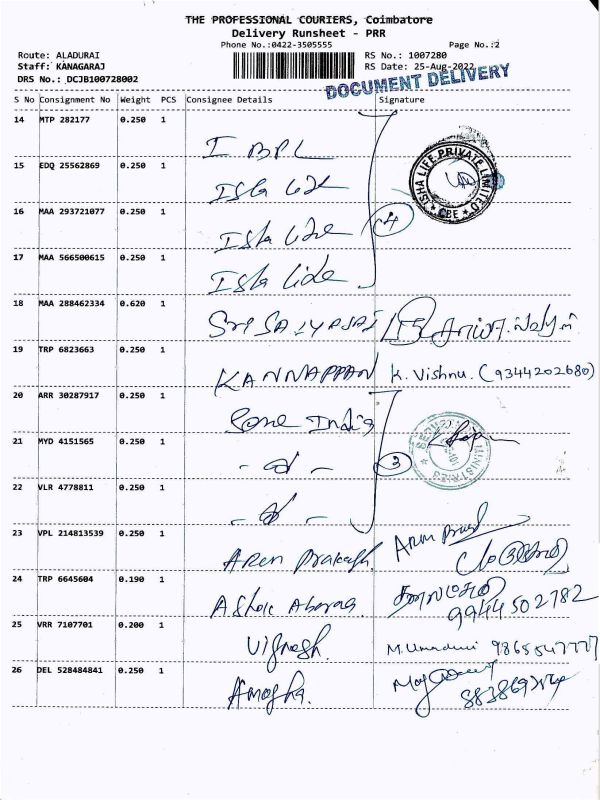 THE PROFESSIONAL COURIERS, Coimbatore
Delivery Runsheet - PRR
Phone No.:0422-3505555
Page No.:2
Route: ALADURAI
RS No.: 1007280
Staff: KANAGARAJ
RS Date: 25-Aug-2022
DRS No.: DCJB100728002
DOCUMENT DELIVERY
S No Consignment No Weight PCS Consignee Details Signature
14 MTP 282177 0.250 1
I BPL
15 EDQ 25562869 0.250 1
Isha Life
ISHA LIFE PRIVATE LIMITED
CBE
16 MAA 293721077 0.250 1
Isha Life
4
17 MAA 566500615 0.250 1
Isha Life
18 MAA 288462334 0.620 1
19 TRP 6823663 0.250 1
KANNAPPAN K. Vishnu. (9344202680)
20 ARR 30287917 0.250 1
India
21 MYD 4151565 0.250 1
3
22 VLR 4778811 0.250 1
23 VPL 214813539 0.250 1
Arun Prakash Arun
24 TRP 6645604 0.190 1
Ashok
9944502782
25 VRR 7107701 0.200 1
Vignesh.
26 DEL 528484841 0.250 1
Amogha.